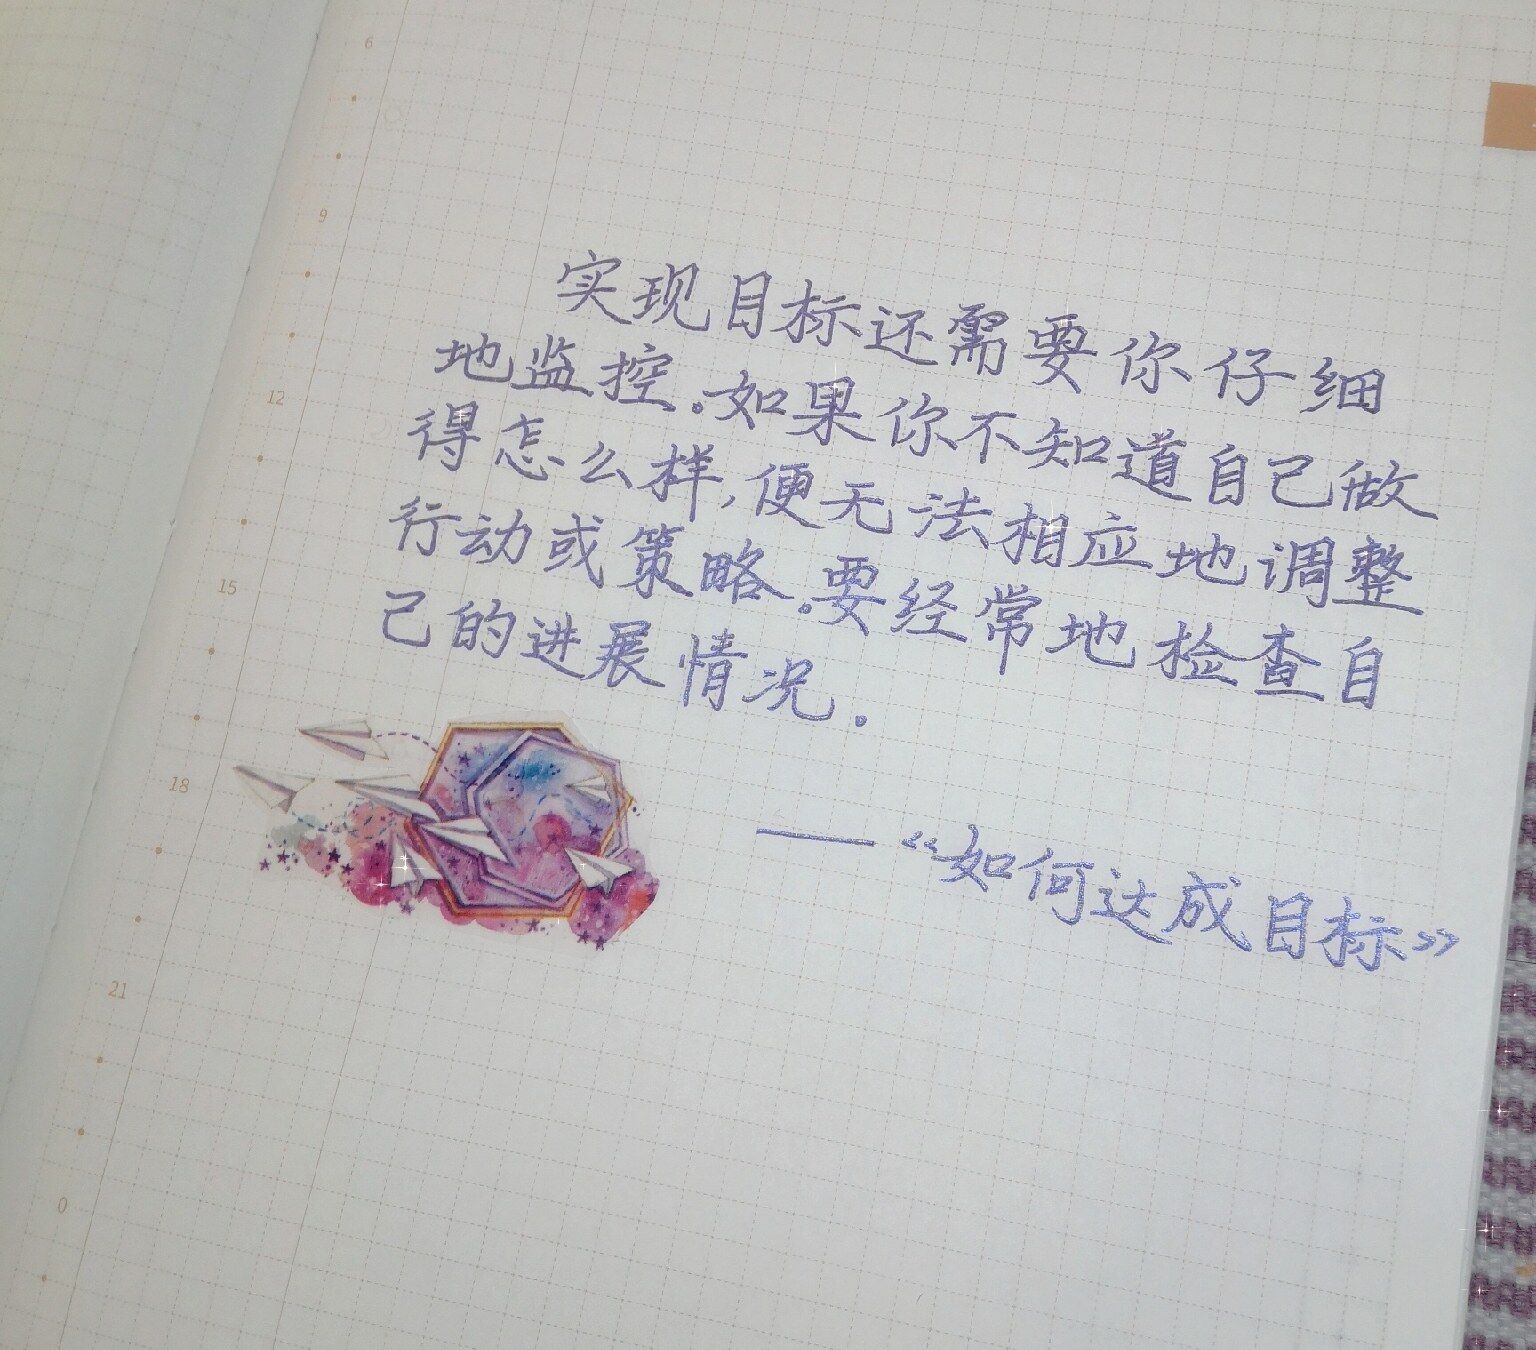 6
9
12
15
18
21
0
实现目标还需要你仔细
地监控。如果你不知道自己做
得怎么样,便无法相应地调整
行动或策略。要经常地检查自
己的进展情况。
——《如何达成目标》